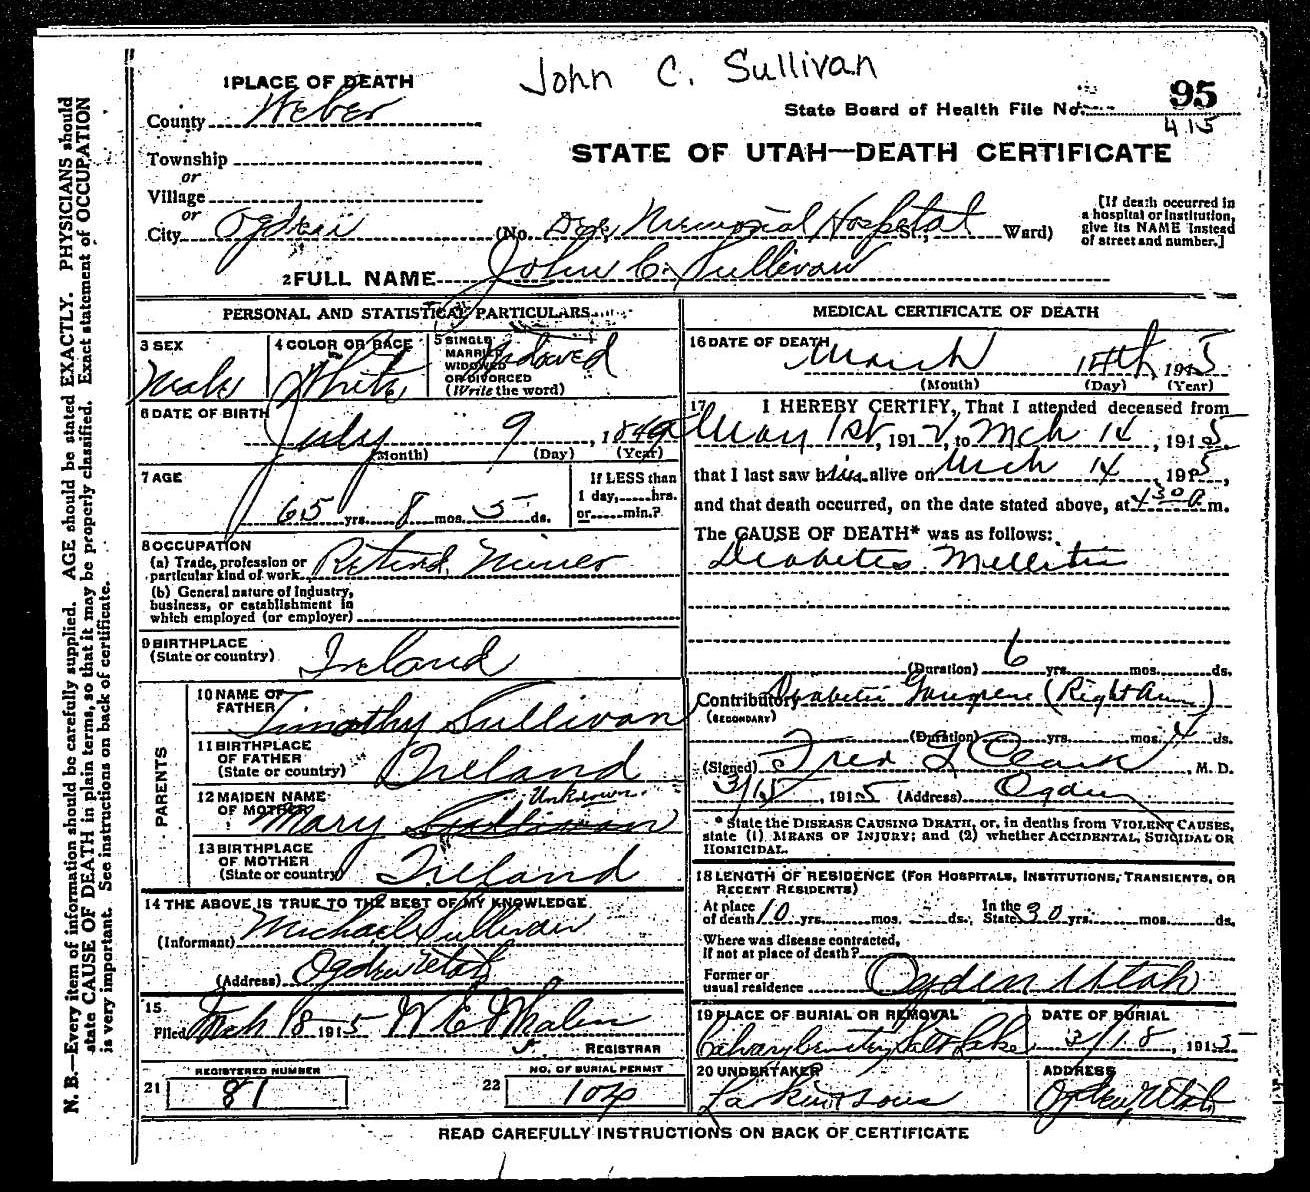 John C. Sullivan
1 PLACE OF DEATH
County Weber
State Board of Health File No. 95
415
Township
or
Village
or
City Ogden
STATE OF UTAH—DEATH CERTIFICATE
(No. Dee Memorial Hospital St., Ward)
[If death occurred in
a hospital or institution,
give its NAME instead
of street and number.]
2 FULL NAME John C. Sullivan
PERSONAL AND STATISTICAL PARTICULARS
3 SEX
Male
4 COLOR OR RACE
White
5 SINGLE
MARRIED
WIDOWED
OR DIVORCED
(Write the word)
Widowed
6 DATE OF BIRTH
July 9, 1849
(Month) (Day) (Year)
7 AGE
65 yrs. 8 mos. 5 ds.
If LESS than
1 day, hrs.
or min.?
8 OCCUPATION
(a) Trade, profession or
particular kind of work Retired Miner
(b) General nature of Industry,
business, or establishment in
which employed (or employer)
9 BIRTHPLACE
(State or country) Ireland
PARENTS
10 NAME OF
FATHER Timothy Sullivan
11 BIRTHPLACE
OF FATHER
(State or country) Ireland
12 MAIDEN NAME
OF MOTHER Mary Sullivan Unknown
13 BIRTHPLACE
OF MOTHER
(State or country) Ireland
14 THE ABOVE IS TRUE TO THE BEST OF MY KNOWLEDGE
(Informant) Michael Sullivan
(Address) Ogden Utah
15
Filed Mch 18 1915 W E Whalen
REGISTRAR
REGISTERED NUMBER
21 81
NO. OF BURIAL PERMIT
22 104
MEDICAL CERTIFICATE OF DEATH
16 DATE OF DEATH
March 14th, 1915
(Month) (Day) (Year)
17 I HEREBY CERTIFY, That I attended deceased from
May 1st, 1912, to Mch 14, 1915
that I last saw him alive on Mch 14, 1915,
and that death occurred, on the date stated above, at 4 30 m.
The CAUSE OF DEATH* was as follows:
Diabetes Mellitus
(Duration) 6 yrs. mos. ds.
Contributory Diabetic Gangrene (Right Arm)
(SECONDARY)
(Duration) yrs. mos. 4 ds.
(Signed) Fred L Clark, M. D.
3/15, 1915 (Address) Ogden
* State the DISEASE CAUSING DEATH, or, in deaths from VIOLENT CAUSES,
state (1) MEANS OF INJURY; and (2) whether ACCIDENTAL, SUICIDAL OR
HOMICIDAL.
18 LENGTH OF RESIDENCE (FOR HOSPITALS, INSTITUTIONS, TRANSIENTS, OR
RECENT RESIDENTS)
At place
of death 10 yrs. mos. ds.
In the
State 30 yrs. mos. ds.
Where was disease contracted,
If not at place of death?
Former or
usual residence Ogden Utah
19 PLACE OF BURIAL OR REMOVAL
Calvary Cemetery Salt Lake
DATE OF BURIAL
3/18, 1915
20 UNDERTAKER
Larkin & Sons
ADDRESS
Ogden, Utah
READ CAREFULLY INSTRUCTIONS ON BACK OF CERTIFICATE
N. B.—Every item of information should be carefully supplied. AGE should be stated EXACTLY. PHYSICIANS should
state CAUSE OF DEATH in plain terms, so that it may be properly classified. Exact statement of OCCUPATION
is very important. See instructions on back of certificate.